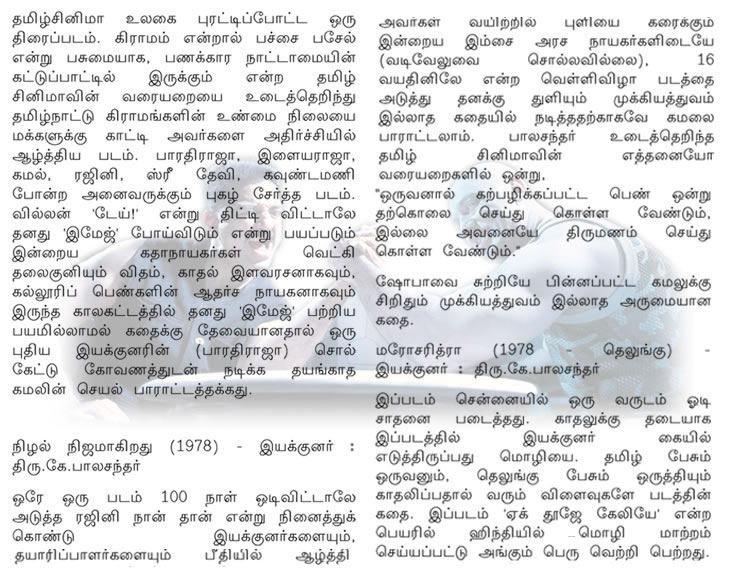 தமிழ்சினிமா உலகை புரட்டிப்போட்ட ஒரு
திரைப்படம். கிராமம் என்றால் பச்சை பசேல்
என்று பசுமையாக, பணக்கார நாட்டாமையின்
கட்டுப்பாட்டில் இருக்கும் என்ற தமிழ்
சினிமாவின் வரையறையை உடைத்தெறிந்து
தமிழ்நாட்டு கிராமங்களின் உண்மை நிலையை
மக்களுக்கு காட்டி அவர்களை அதிர்ச்சியில்
ஆழ்த்திய படம். பாரதிராஜா, இளையராஜா,
கமல், ரஜினி, ஸ்ரீ தேவி, கவுண்டமணி
போன்ற அனைவருக்கும் புகழ் சேர்த்த படம்.
வில்லன் 'டேய்!' என்று திட்டி விட்டாலே
தனது 'இமேஜ்' போய்விடும் என்று பயப்படும்
இன்றைய கதாநாயகர்கள் வெட்கி
தலைகுனியும் விதம், காதல் இளவரசனாகவும்,
கல்லூரிப் பெண்களின் ஆதர்ச நாயகனாகவும்
இருந்த காலகட்டத்தில் தனது 'இமேஜ்' பற்றிய
பயமில்லாமல் கதைக்கு தேவையானதால் ஒரு
புதிய இயக்குனரின் (பாரதிராஜா) சொல்
கேட்டு கோவணத்துடன் நடிக்க தயங்காத
கமலின் செயல் பாராட்டத்தக்கது.
நிழல் நிஜமாகிறது (1978) - இயக்குனர் :
திரு.கே.பாலசந்தர்
ஒரே ஒரு படம் 100 நாள் ஒடிவிட்டாலே
அடுத்த ரஜினி நான் தான் என்று நினைத்துக்
கொண்டு இயக்குனர்களையும்,
தயாரிப்பாளர்களையும் பீதியில் ஆழ்த்தி
அவர்கள் வயிற்றில் புளியை கரைக்கும்
இன்றைய இம்சை அரச நாயகர்களிடையே
(வடிவேலுவை சொல்லவில்லை), 16
வயதினிலே என்ற வெள்ளிவிழா படத்தை
அடுத்து தனக்கு துளியும் முக்கியத்துவம்
இல்லாத கதையில் நடித்ததற்காகவே கமலை
பாராட்டலாம். பாலசந்தர் உடைத்தெறிந்த
தமிழ் சினிமாவின் எத்தனையோ
வரையறைகளில் ஒன்று,
"ஒருவனால் கற்பழிக்கப்பட்ட பெண் ஒன்று
தற்கொலை செய்து கொள்ள வேண்டும்,
இல்லை அவனையே திருமணம் செய்து
கொள்ள வேண்டும்."
ஷோபாவை சுற்றியே பின்னப்பட்ட கமலுக்கு
சிறிதும் முக்கியத்துவம் இல்லாத அருமையான
கதை.
மரோசரித்ரா (1978 - தெலுங்கு) -
இயக்குனர் : திரு.கே.பாலசந்தர்
இப்படம் சென்னையில் ஒரு வருடம் ஓடி
சாதனை படைத்தது. காதலுக்கு தடையாக
இப்படத்தில் இயக்குனர் கையில்
எடுத்திருப்பது மொழியை. தமிழ் பேசும்
ஒருவனும், தெலுங்கு பேசும் ஒருத்தியும்
காதலிப்பதால் வரும் விளைவுகளே படத்தின்
கதை. இப்படம் 'ஏக் தூஜே கேலியே' என்ற
பெயரில் ஹிந்தியில் மொழி மாற்றம்
செய்யப்பட்டு அங்கும் பெரு வெற்றி பெற்றது.